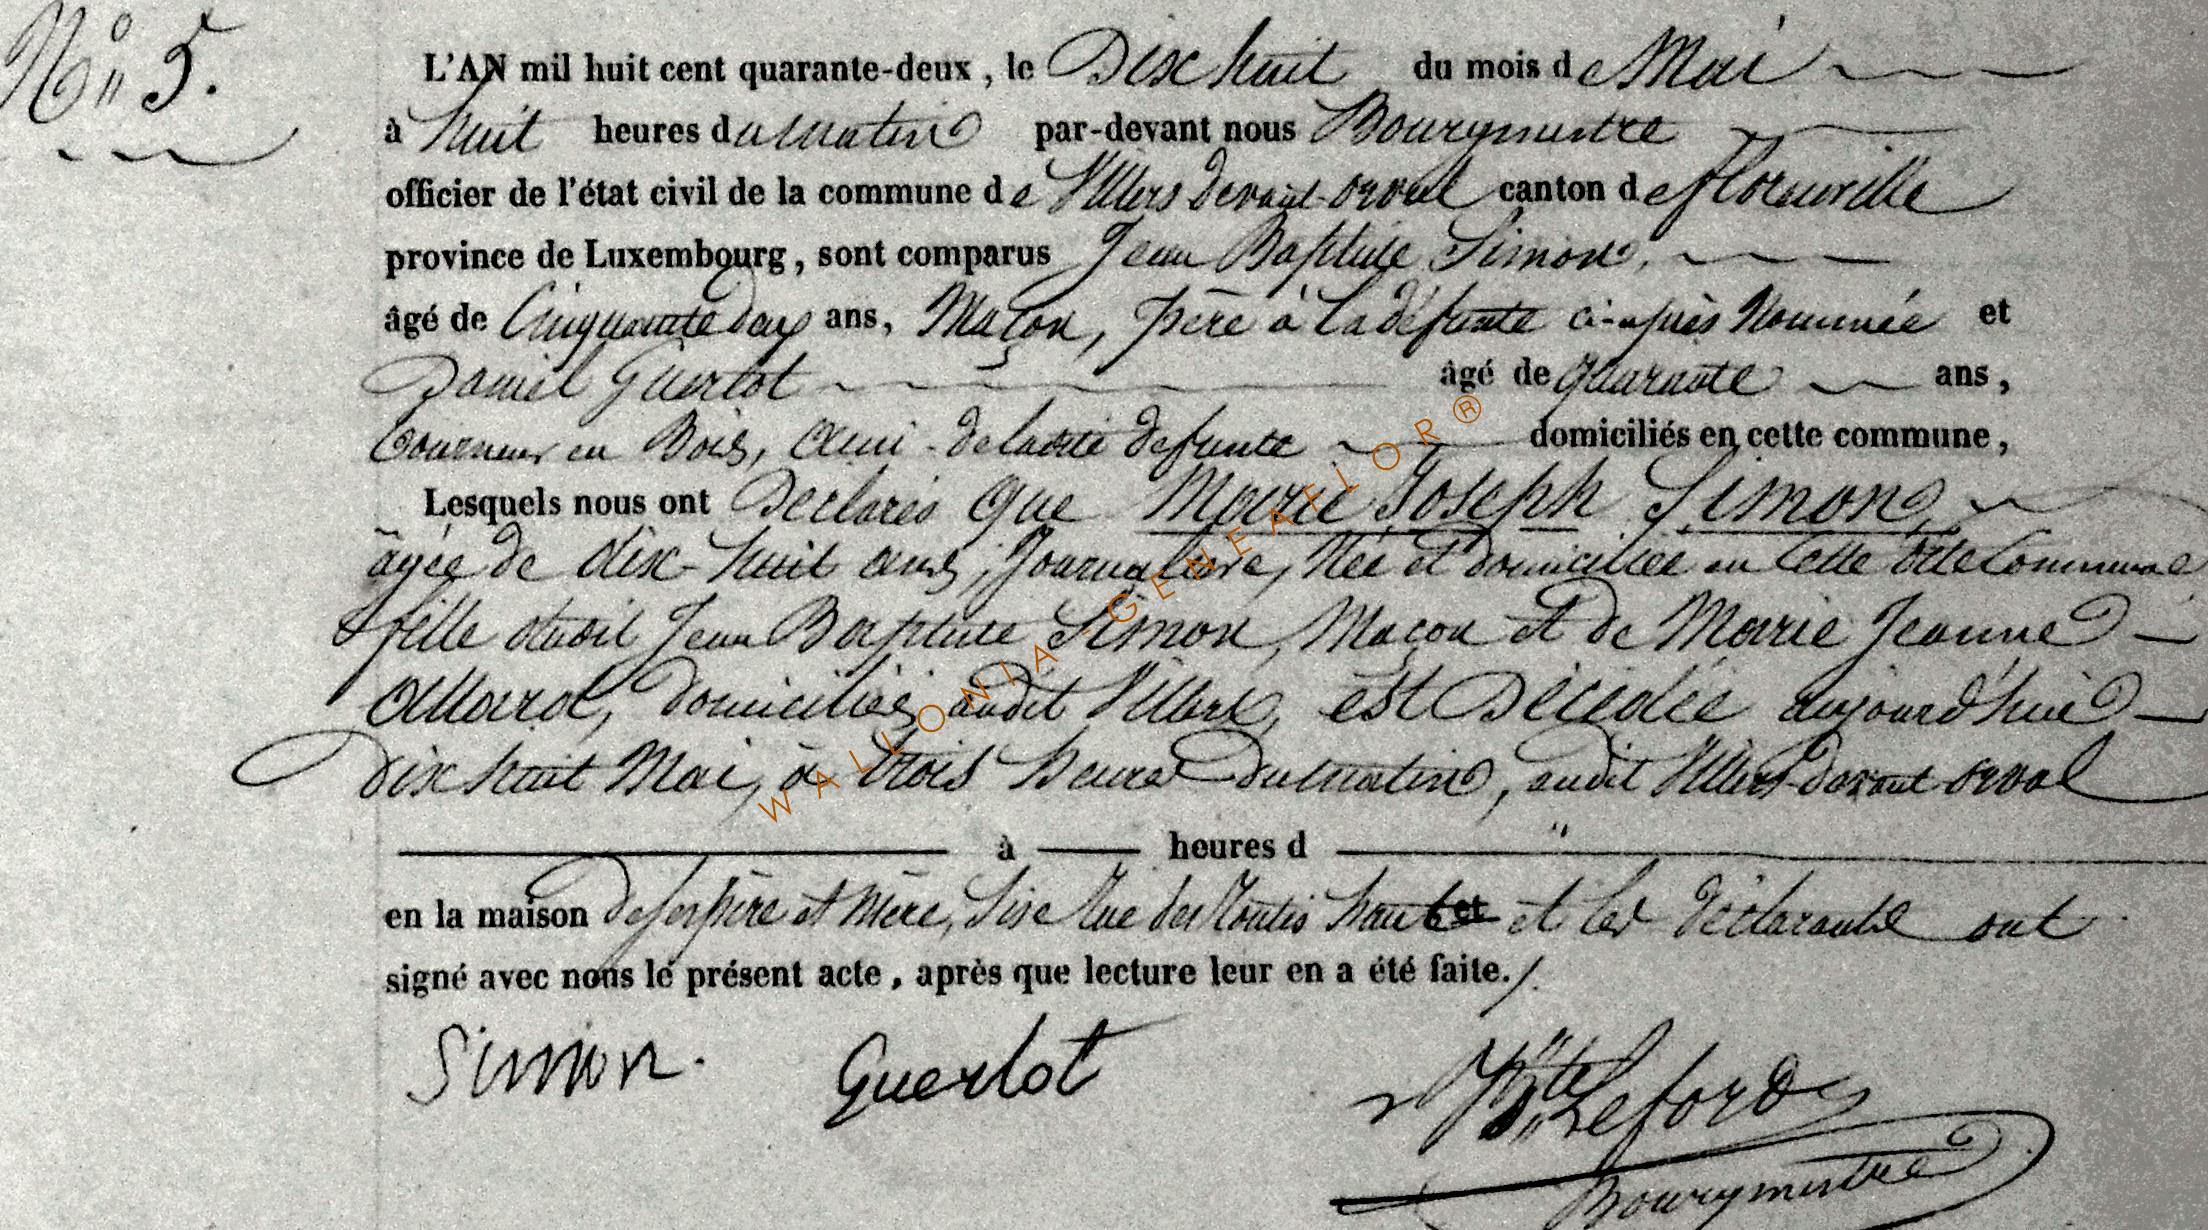 N° 5.
L'AN mil huit cent quarante-deux, le Dix huit du mois de Mai
à huit heures du matin par-devant nous Bourgmestre
officier de l'état civil de la commune de Villers devant-orval canton de florenville
province de Luxembourg, sont comparus Jean Baptiste Simon,
âgé de Cinquante deux ans, Maçon, père à la défunte ci-après Nommée et
Daniel Guerlot âgé de quarante ans,
tourneur en Bois, ami de ladite defunte domiciliés en cette commune,
Lesquels nous ont Déclarés que Marie Joseph Simon,
âgée de dix-huit ans, Journalière, Née et domiciliée en cette dite Commune
fille dudit Jean Baptiste Simon, Maçon et de Marie Jeanne
Allard, domiciliés audit Villers, est Décédée aujourd'hui
Dix huit Mai, à trois heures du matin, audit Villers-devant orval
à heures d "
en la maison de ses père et Mère, Sise Rue des haut et les déclarants ont
signé avec nous le présent acte, après que lecture leur en a été faite./.
Simon. Guerlot
Leford
Bourgmestre
WALLONIA-GENEAFLOR®